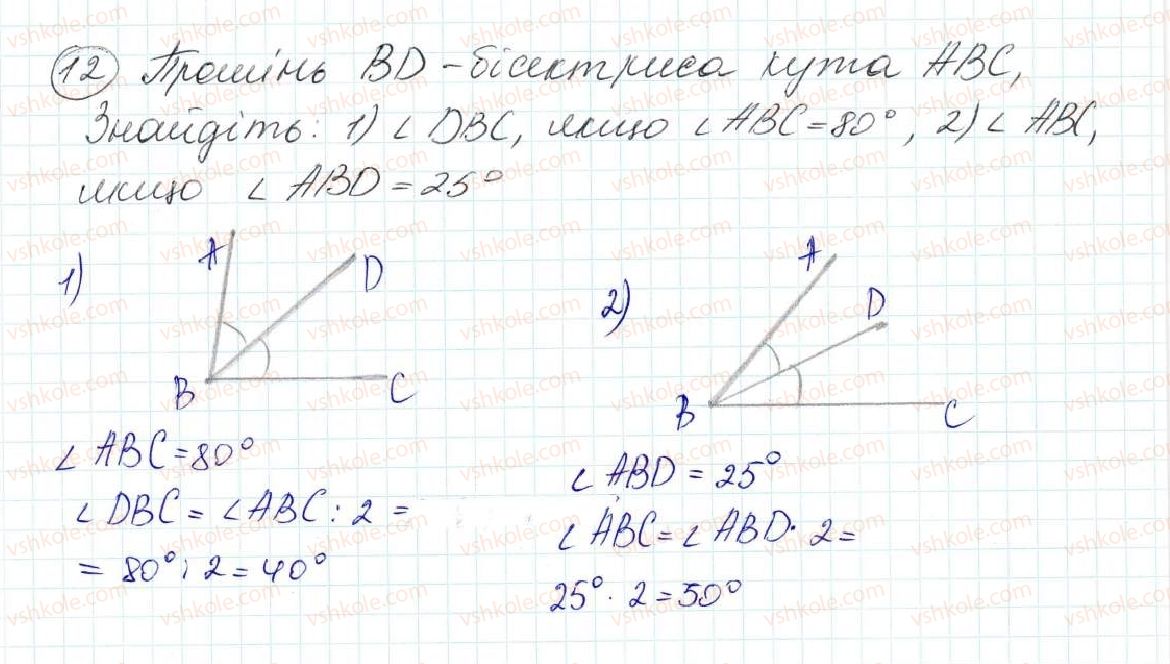 12 Промінь BD - бісектриса кута ABC,
Знайдіть: 1) ∠ DBC, якщо ∠ ABC = 80°, 2) ∠ ABC,
якщо ∠ ABD = 25°
1)
A
D
B
C
∠ ABC = 80°
∠ DBC = ∠ ABC : 2 =
= 80° : 2 = 40°
2)
A
D
B
C
∠ ABD = 25°
∠ ABC = ∠ ABD · 2 =
25° · 2 = 50°
vshkole.com